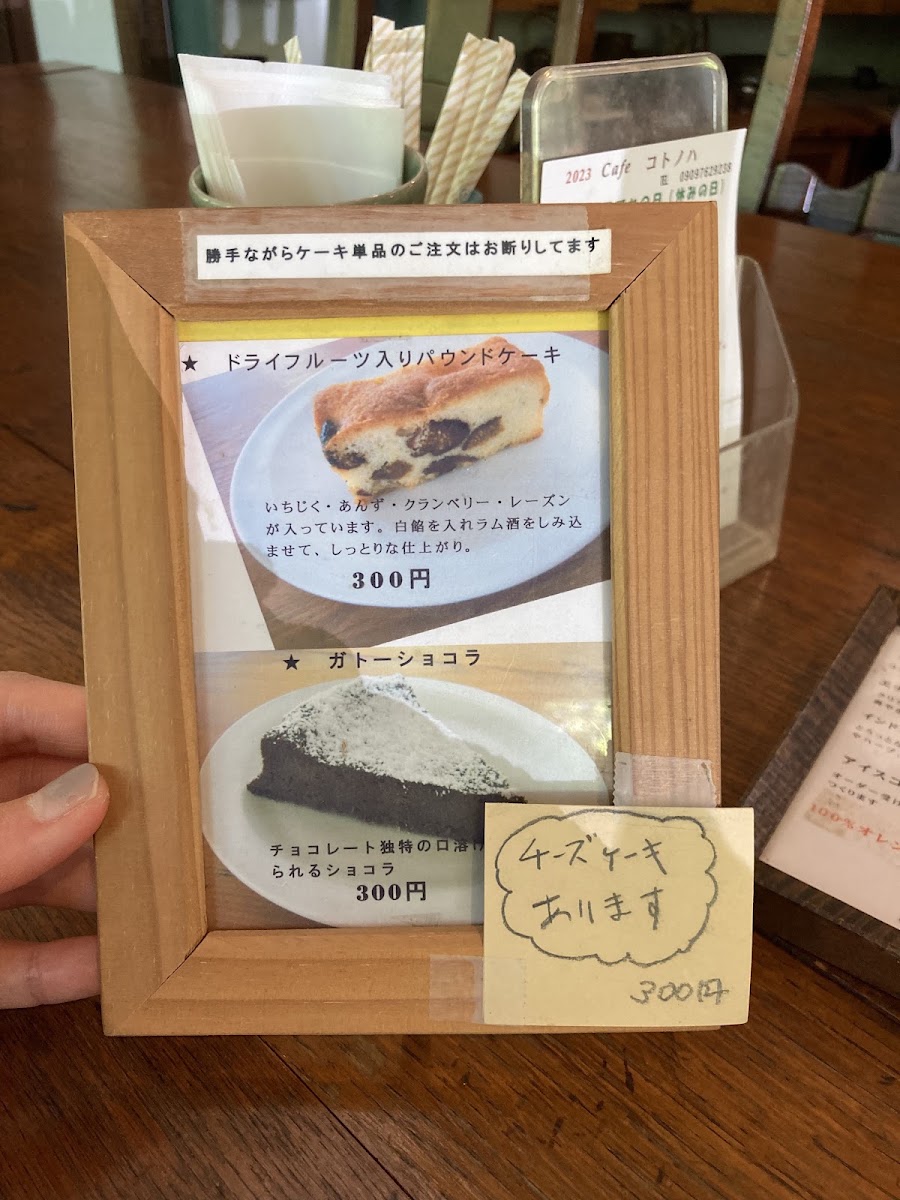 2023 Cafe コトノハ
09097629238
勝手ながらケーキ単品のご注文はお断りしてます
★ ドライフルーツ入りパウンドケーキ
いちじく・あんず・クランベリー・レーズン
が入っています。白餡を入れラム酒をしみ込
ませて、しっとりな仕上がり。
300円
★ ガトーショコラ
チョコレート独特の口溶け
られるショコラ
300円
チーズケーキ
あります
300円
インド
アイスコ
オーダー
つくります
100%オレン